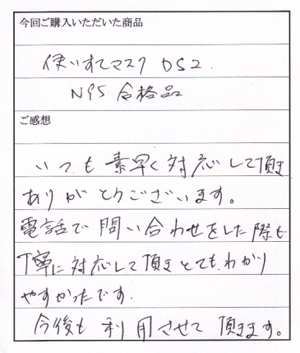 今回ご購入いただいた商品
使いすてマスク DS2.
N95 合格品
ご感想
いつも素早く対応して頂き
ありがとうございます。
電話で問い合わせをした際も
丁寧に対応して頂きとてもわかり
やすかったです.
今後も利用させて頂きます。